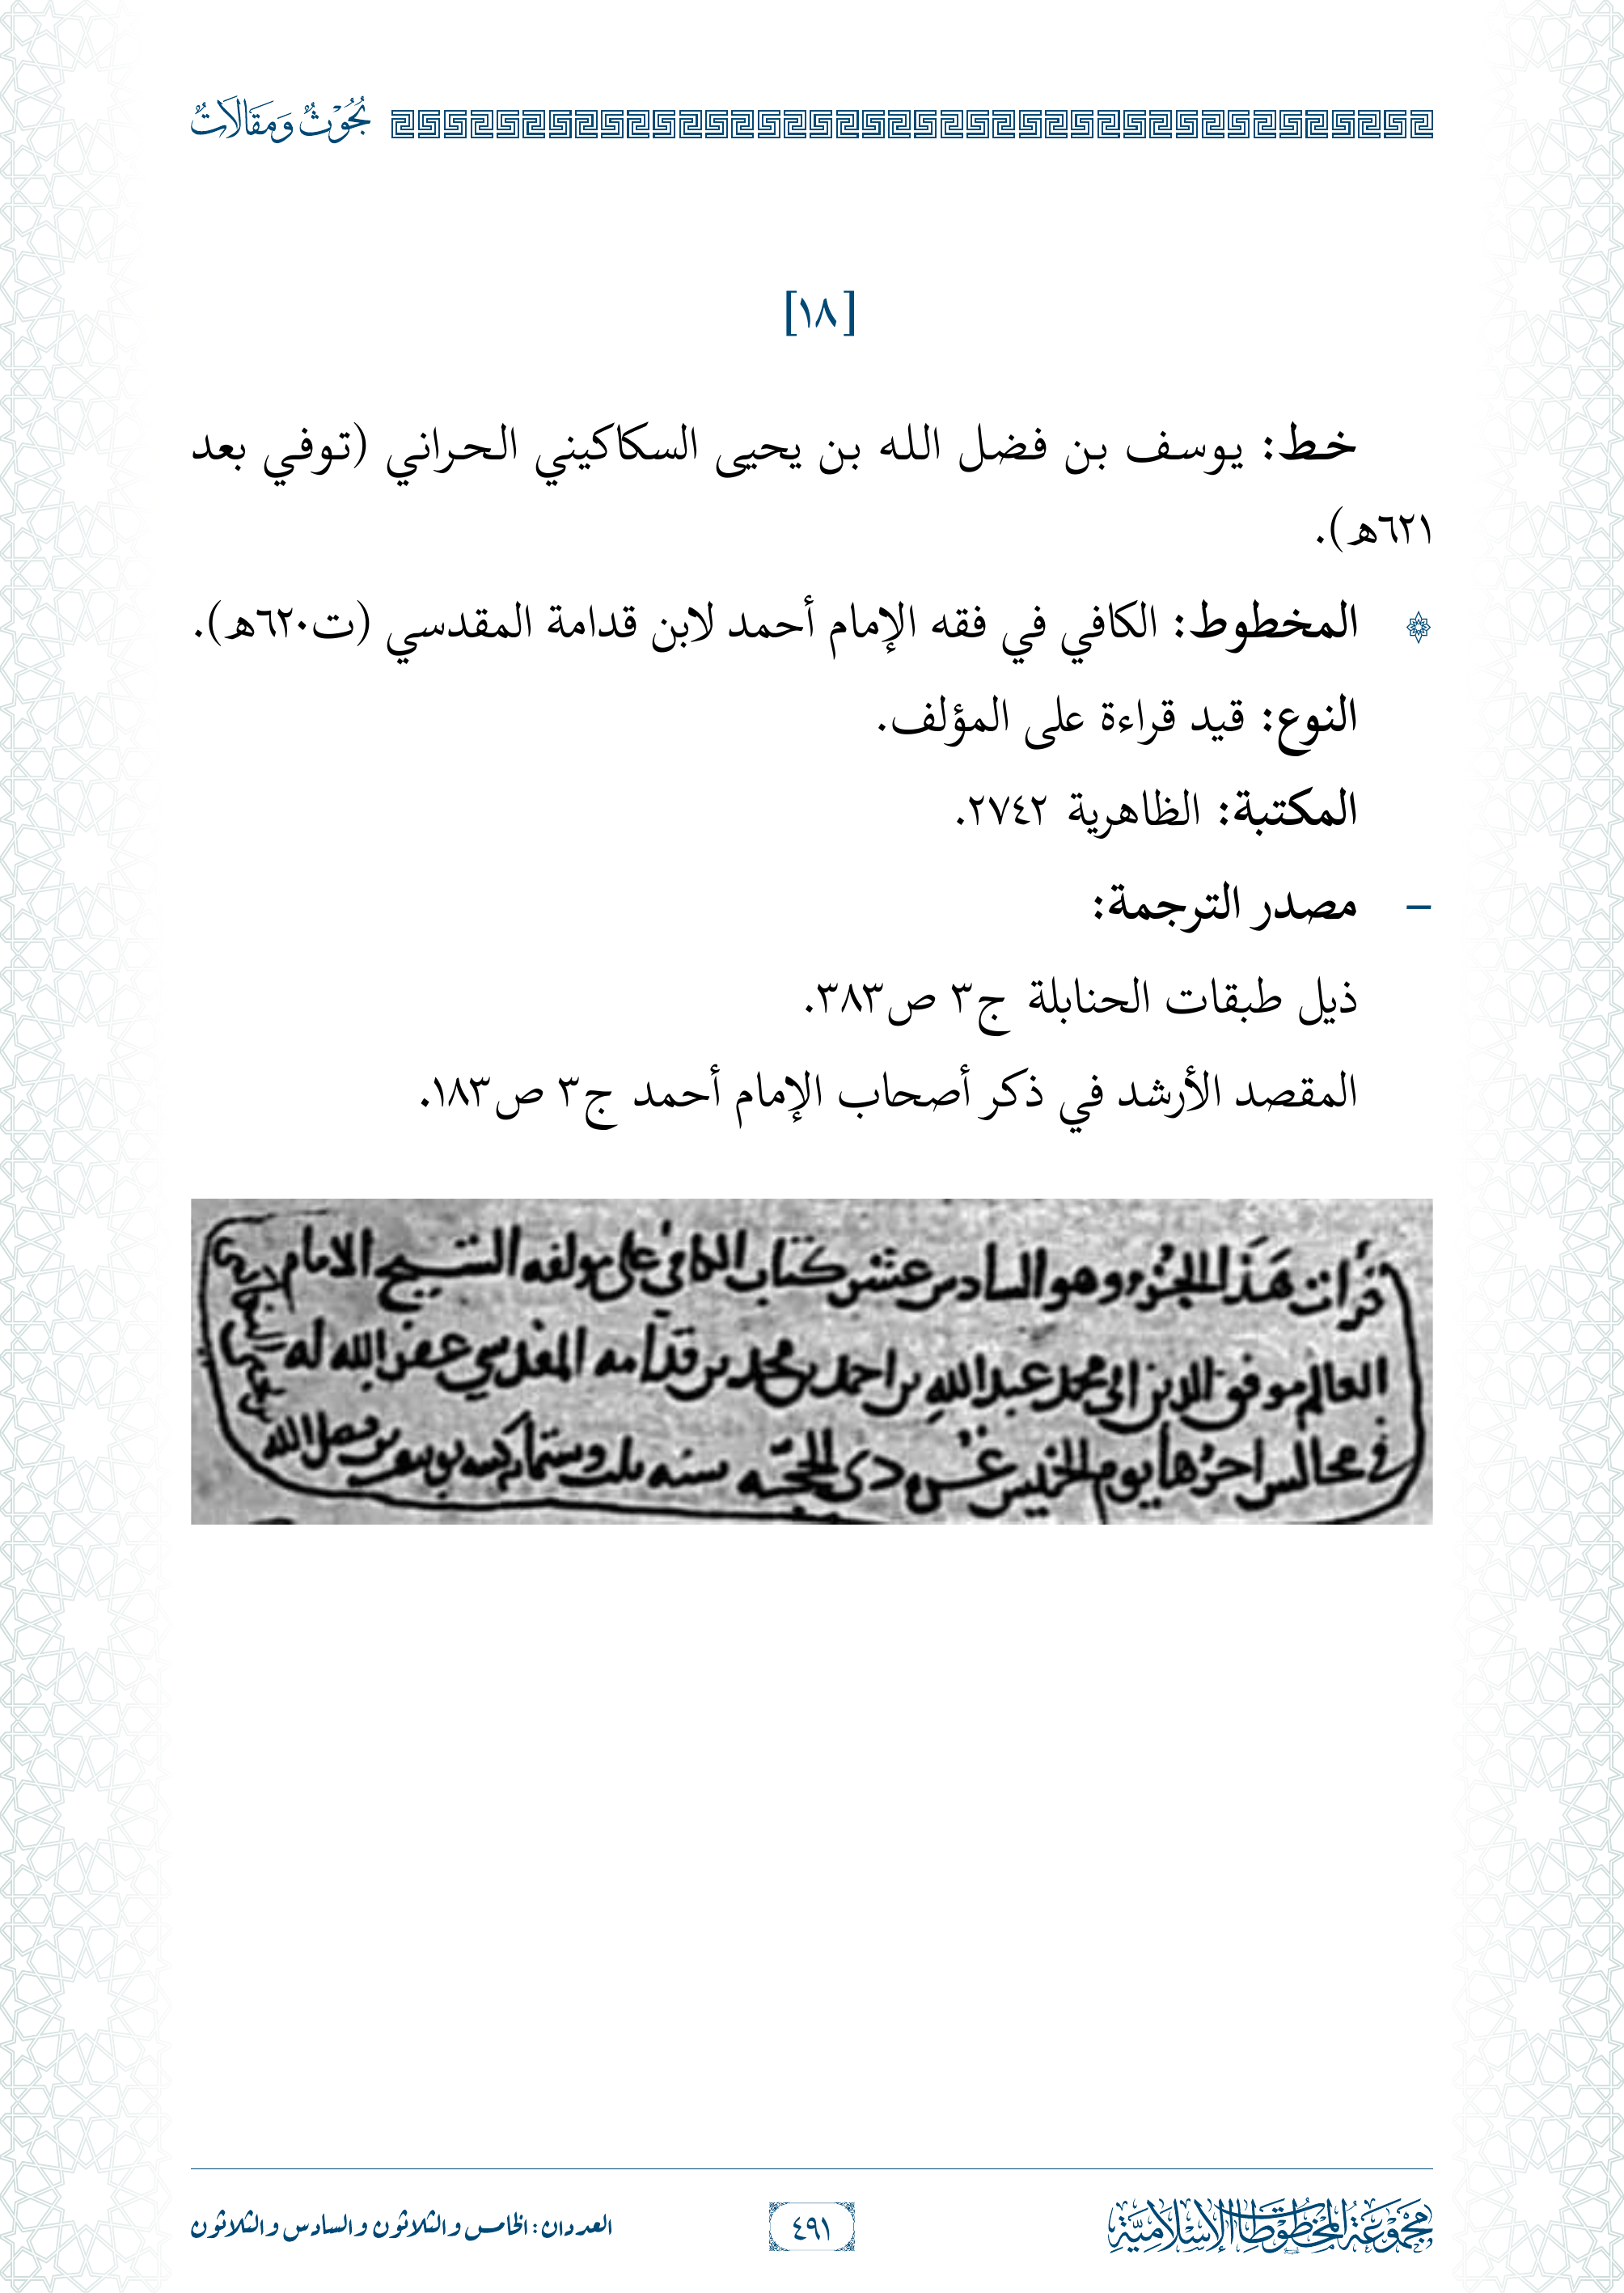 بُحُوْثٌ وَمَقَالَاتٌ
[١٨]
خط: يوسف بن فضل الله بن يحيى السكاكيني الحراني (توفي بعد
٦٢١هـ).
المخطوط: الكافي في فقه الإمام أحمد لابن قدامة المقدسي (ت٦٢٠هـ).
النوع: قيد قراءة على المؤلف.
المكتبة: الظاهرية ٢٧٤٢.
– مصدر الترجمة:
ذيل طبقات الحنابلة ج٣ ص٣٨٣.
المقصد الأرشد في ذكر أصحاب الإمام أحمد ج٣ ص١٨٣.
قرأت هَذَا الجزء وهو السادس عشر كتاب الكافي على مولفه الشيخ الامام
العالم موفق الدين ابي محمد عبد الله بن احمد بن محمد بن قدامه المقدسي عفر الله له
في مجالس اخرها يوم الخميس دى الحجه سنه وستمايه كتبه يوسف بن فضل الله
بن يحيى
مَجْمُوعَةُ المَخْطُوطَاتِ الإِسْلَامِيَّةِ
٤٩١
العددان: الخامس والثلاثون والسادس والثلاثون